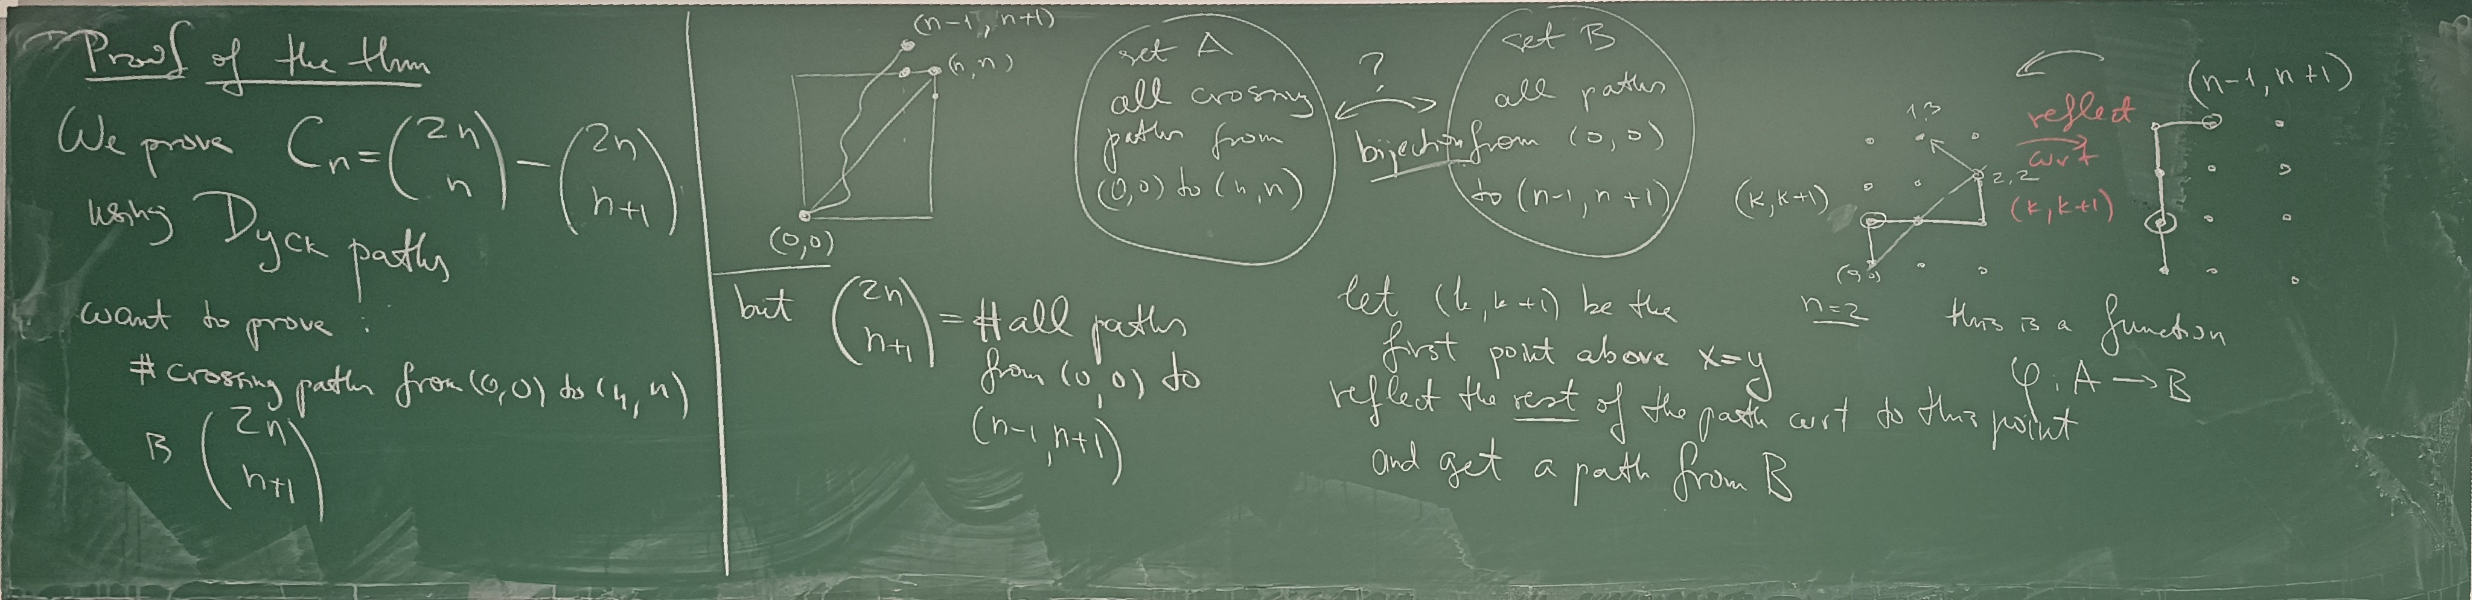 Proof of the thm
We prove C_n = \binom{2n}{n} - \binom{2n}{n+1}
using Dyck paths
want to prove :
# crossing paths from (0,0) to (n, n)
is \binom{2n}{n+1}
(n-1, n+1)
(n, n)
(0,0)
but \binom{2n}{n+1} = # all paths
from (0,0) to
(n-1, n+1)
set A
all crossing
paths from
(0,0) to (n, n)
?
bijection
set B
all paths
from (0, 0)
to (n-1, n+1)
let (k, k+1) be the
first point above x=y
reflect the rest of the path wrt to this point
and get a path from B
(k, k+1)
1,3
2,2
(0,0)
n=2
reflect
wrt
(k, k+1)
(n-1, n+1)
this is a function
φ: A → B